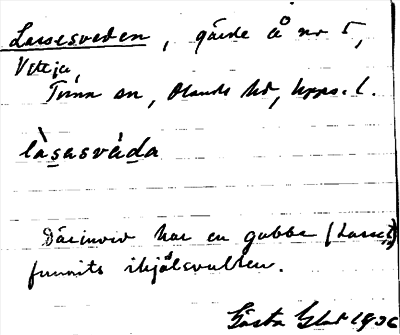 Lassesveden, gärde å nr 5,
Viteja,
Tuna sn, Olands hd, Upps. l.
làsasvèda
Därinvid har en gubbe (Lasse)
funnits ihjälsvulten.
Gösta 1936